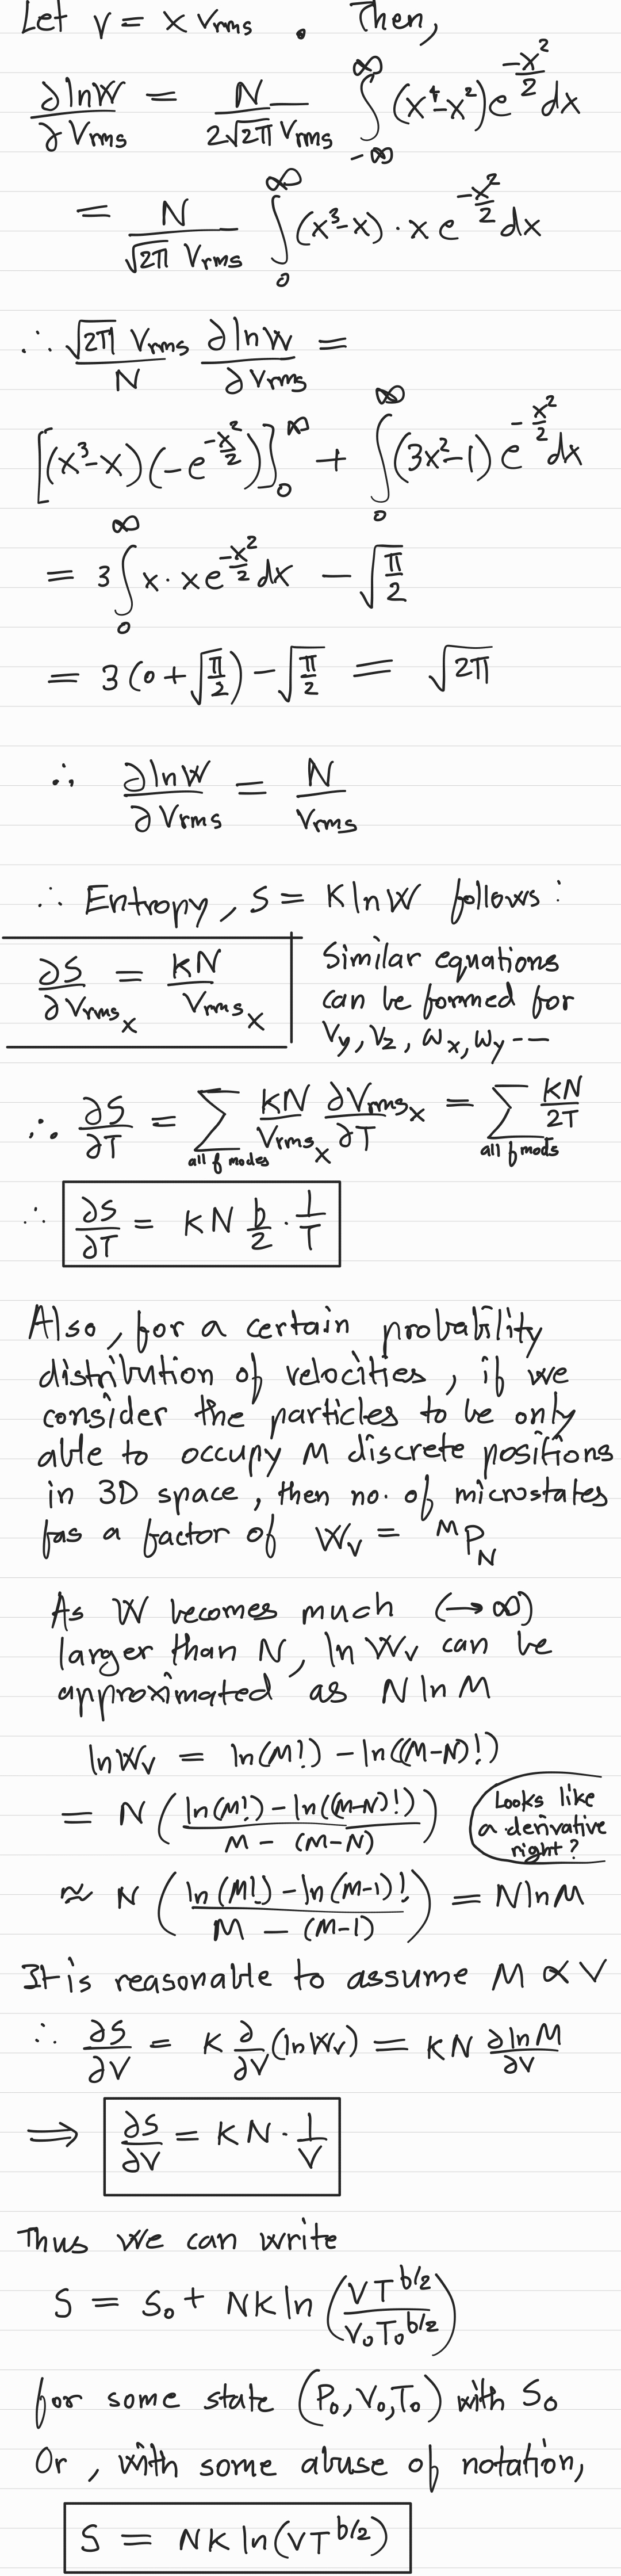 Let v = x Vrms . Then,
∂lnW/∂Vrms = N/(2√(2π) Vrms) ∫_{-∞}^{∞} (x⁴-x²) e^{-x²/2} dx
= N/(√(2π) Vrms) ∫_0^∞ (x³-x) · x e^{-x²/2} dx
∴ √(2π) Vrms/N ∂lnW/∂Vrms =
[(x³-x)(-e^{-x²/2})]_0^∞ + ∫_0^∞ (3x²-1) e^{-x²/2} dx
= 3 ∫_0^∞ x · x e^{-x²/2} dx - √(π/2)
= 3 (0 + √(π/2)) - √(π/2) = √(2π)
∴ ∂lnW/∂Vrms = N/Vrms
∴ Entropy, S = K ln W follows :
∂S/∂Vrms_x = KN/Vrms_x
Similar equations
can be formed for
Vy, Vz, ωx, ωy ---
∴ ∂S/∂T = Σ_{all f modes} KN/Vrms_x ∂Vrms_x/∂T = Σ_{all f mods} KN/2T
∴ ∂S/∂T = KN f/2 · 1/T
Also, for a certain probability
distribution of velocities, if we
consider the particles to be only
able to occupy M discrete positions
in 3D space, then no. of microstates
has a factor of W_V = ᴹP_N
As W becomes much (→∞)
larger than N, ln W_V can be
approximated as N ln M
ln W_V = ln(M!) - ln((M-N)!)
= N ( (ln(M!) - ln((M-N)!)) / (M - (M-N)) )
Looks like
a derivative
right?
≈ N ( (ln(M!) - ln(M-1)!) / (M - (M-1)) ) = N ln M
It is reasonable to assume M ∝ V
∴ ∂S/∂V = K ∂/∂V (ln W_V) = KN ∂lnM/∂V
⟹ ∂S/∂V = KN · 1/V
Thus we can write
S = S₀ + NK ln (VT^{f/2} / V₀T₀^{f/2})
for some state (P₀, V₀, T₀) with S₀
Or, with some abuse of notation,
S = NK ln(VT^{f/2})